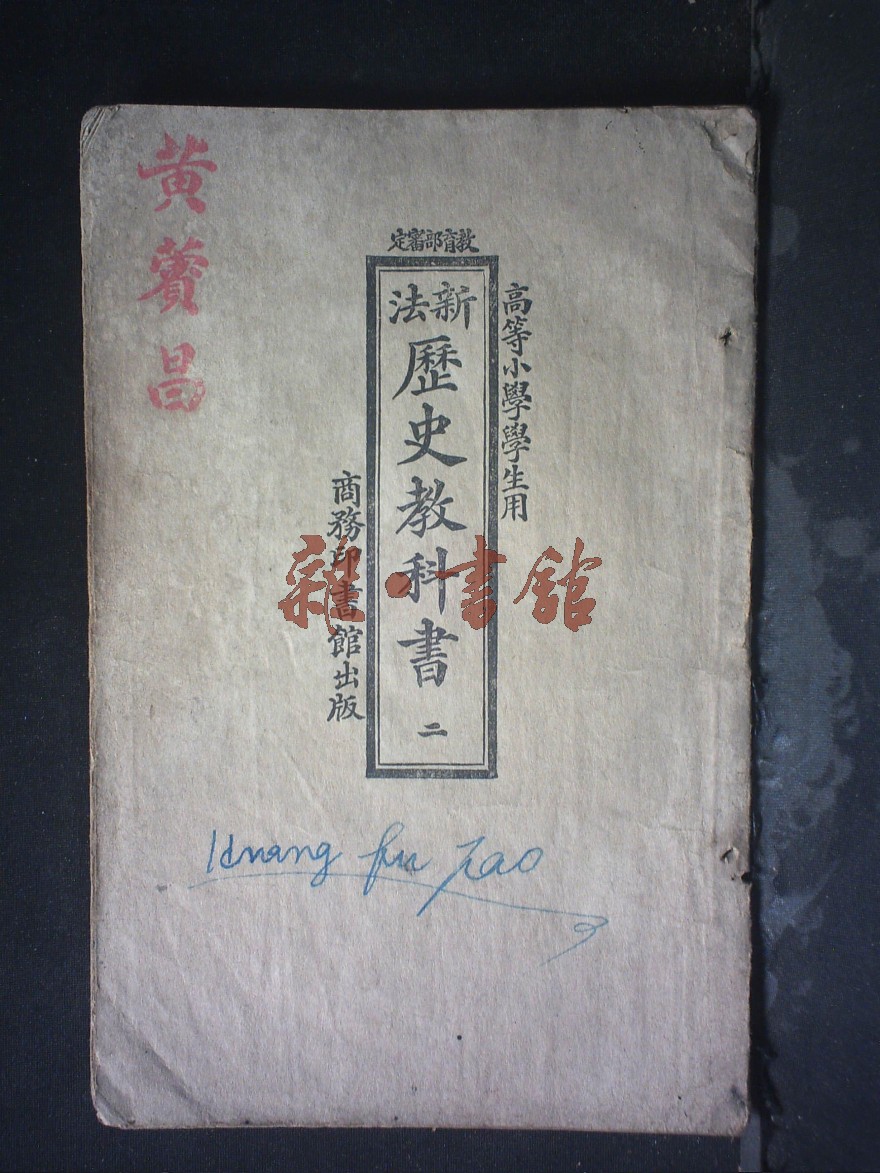 教育部審定
高等小學學生用
新法
歷史教科書 二
商務印書館出版
黃賚昌
雜·書館